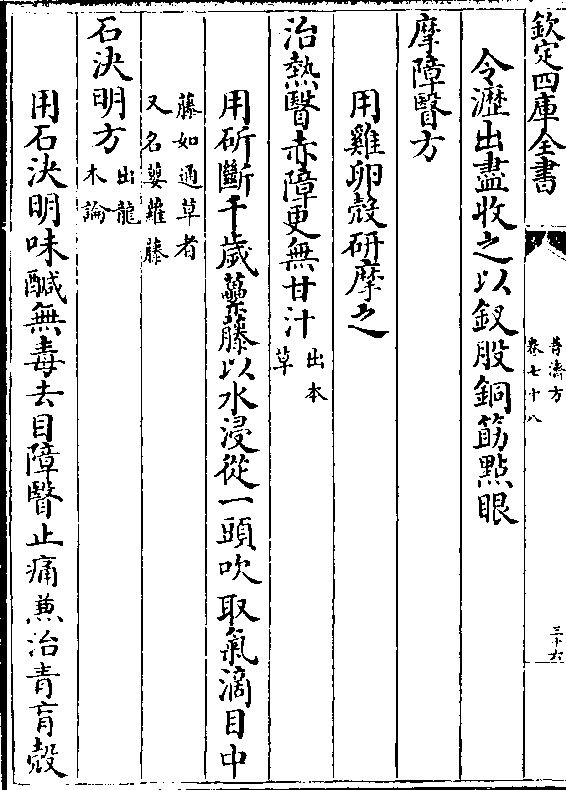 欽定四庫全書
普濟方
卷七十八
三十六
令瀝出盡收之以釵股銅筋點眼
摩障瞖方
用雞卵殼研摩之
治熱瞖赤障更無甘汁出本草
用斫斷千歲虆藤以水浸從一頭吹取氣滴目中
藤如通草者
又名婆羅藤
石決明方出龍木論
用石決明味醎無毒去目障瞖止痛兼治青盲殼